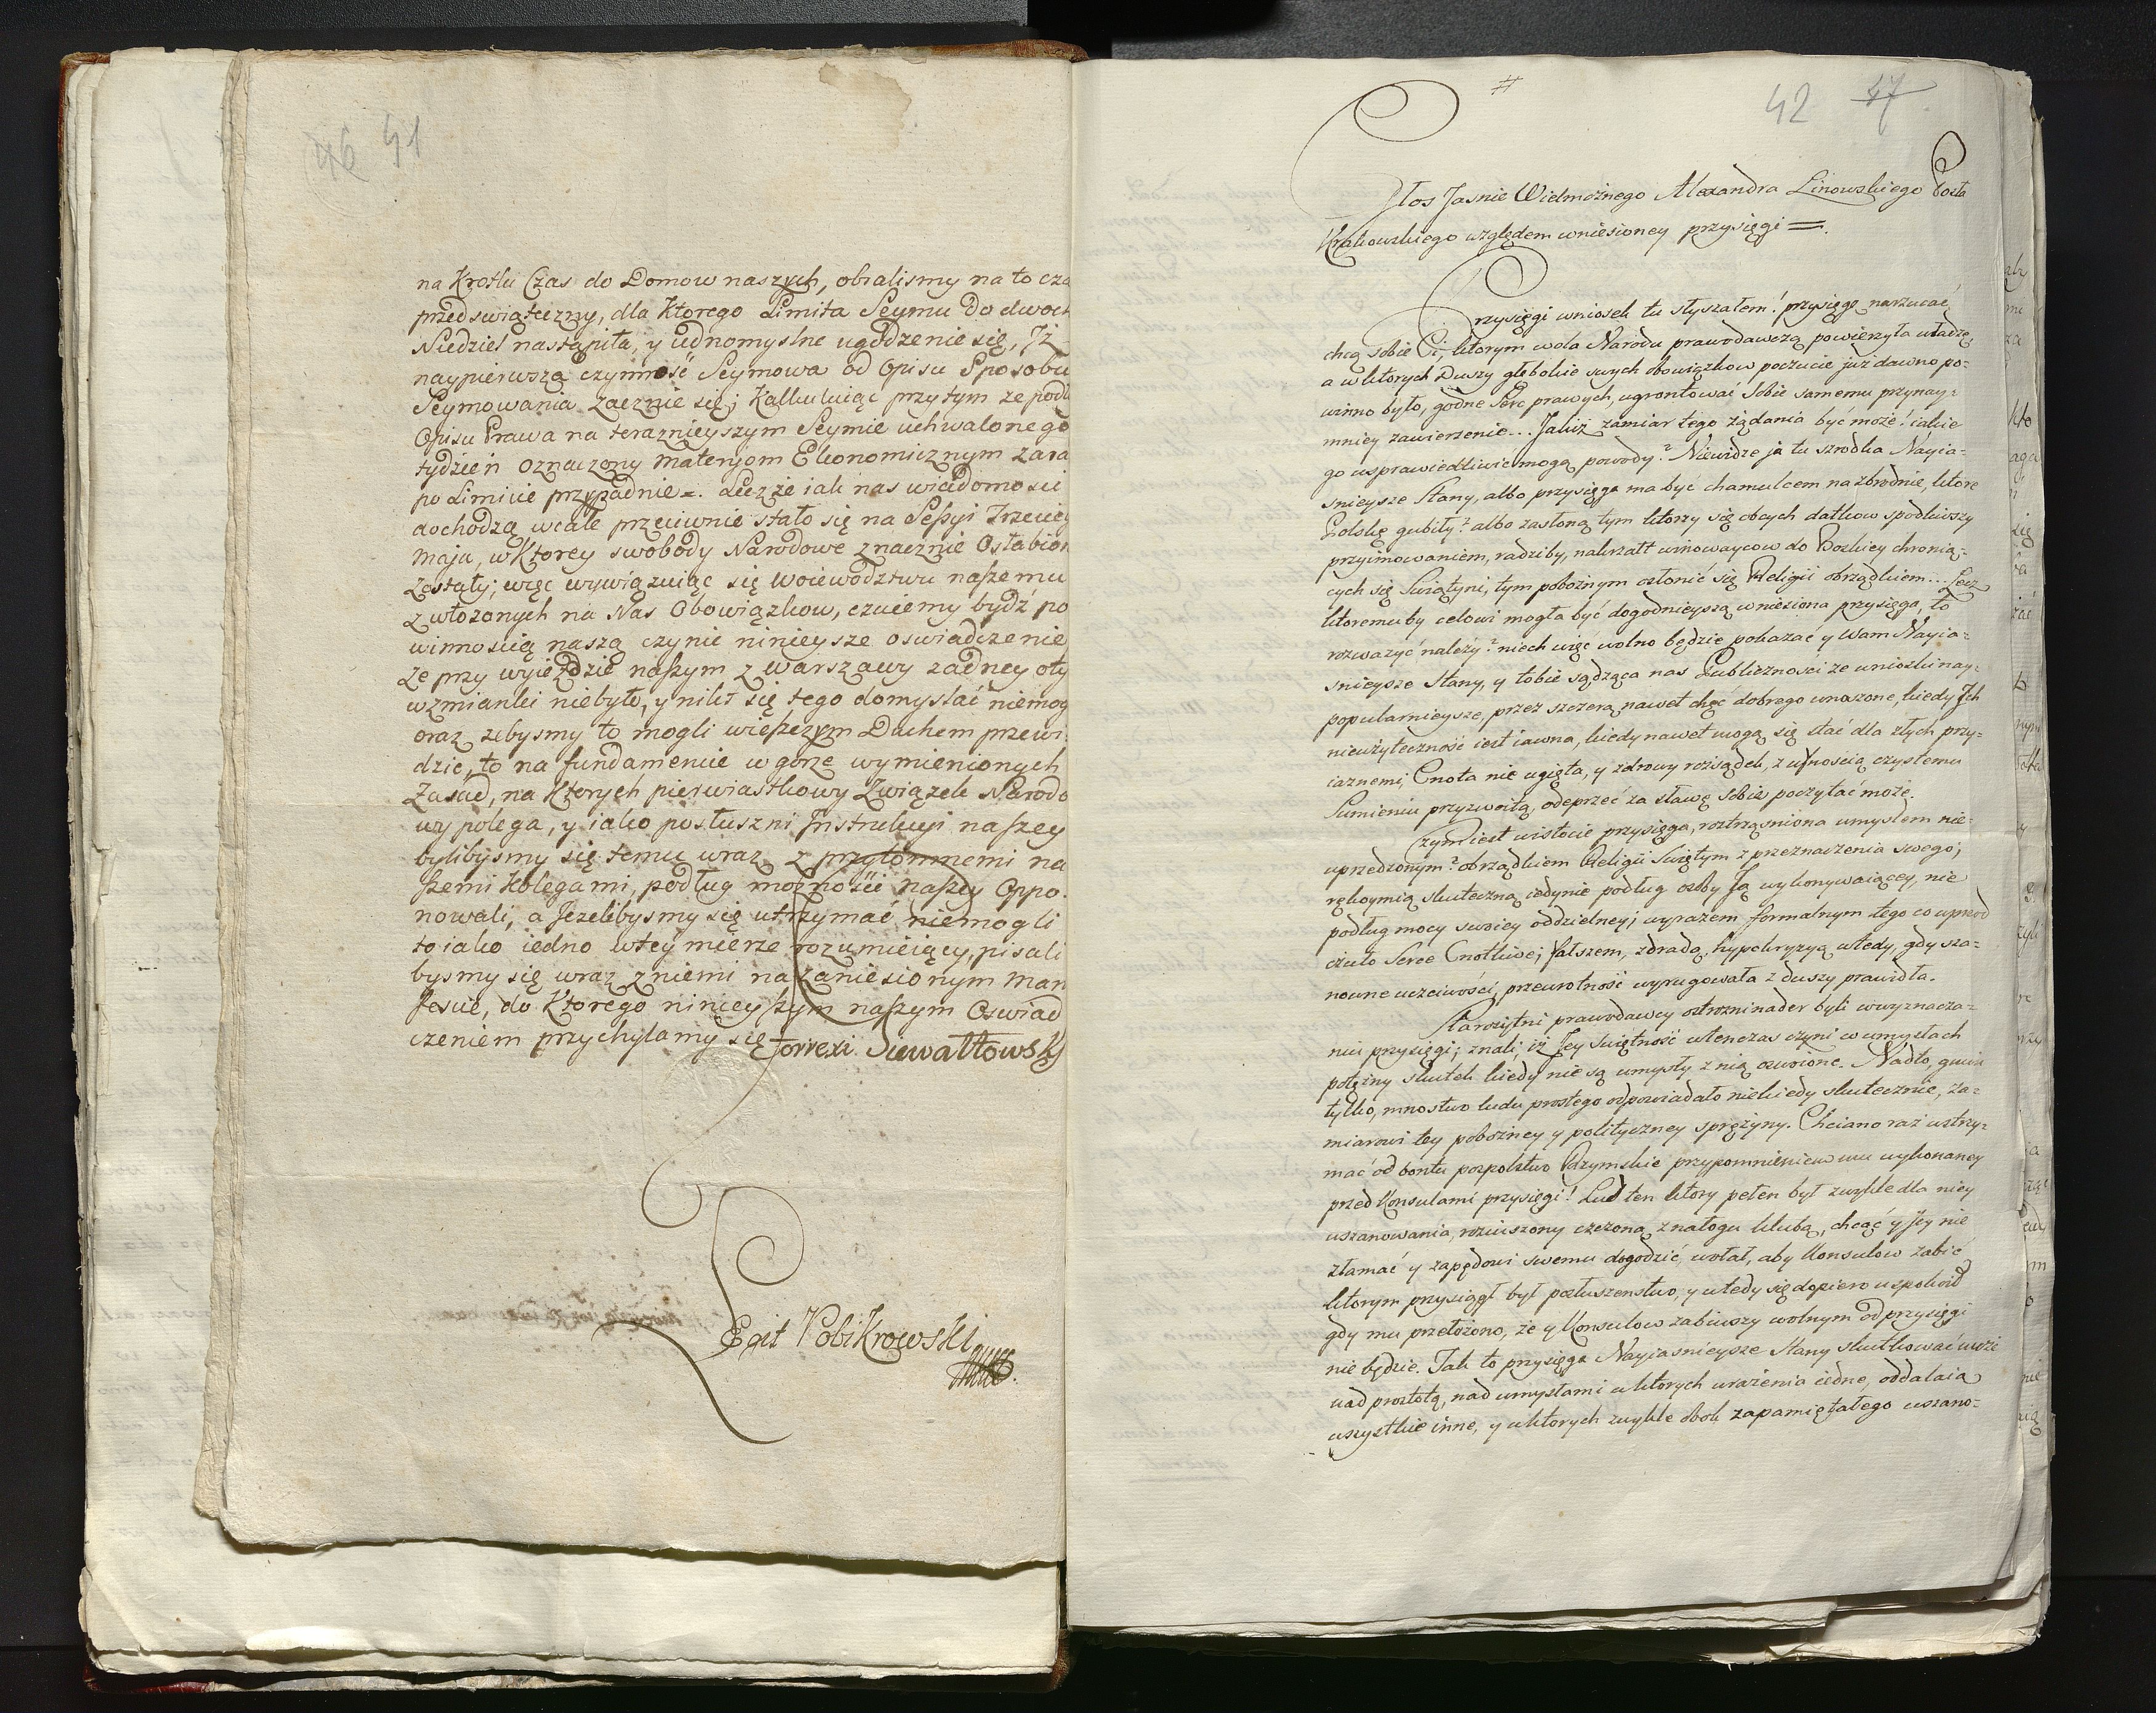 46 41
na Krotki Czas do Domow naszych, obralismy na to cza
przedswiąteczny, dla Ktorego Limita Seymu do dwoch
Niedziel nastąpiła, y iednomyslne ugodzenie się, Jż
naypierwszą czynność Seymowa od Opisu Sposobu
Seymowania zacznie się; Kalkuluiąc przytym ze podł
Opisu Prawa na teraznieyszym Seymie uchwalonego
tydzień Oznaczony Materyom Ekonomicznym zara
po Limicie przypadnie =. Lecz że iak nas wiadomosci
dochodzą, wcale przeciwnie stało się na Seßyi Trzeciey
Maja, w Ktorey swobody Narodowe znacznie Osłabion
Zostały; więc wywiązuiąc się woiewodztwu naßemu
z włożonych na Nas Obowiązkow, czuiemy bydź po
winnoscią naszą czynić ninieysze oswiadczenie
że przy wyieździe naßym z Warszawy żadney oty
wzmianki niebyło, y nikt się tego domyslać niemog
oraz żebysmy to mogli wießczym Duchem przewi
dzic, to na fundamencie w gorze wymienionych
Zasad, na Ktorych pierwiastkowy Związek Narodo
wy polega, y iako posłuszni Jnstrukcyi naßey
bylibysmy się temu wraz z przytomnemi na
ßemi Kolegami, podług możności naßey Oppo.
nowali, a Jezelibysmy się utrzymać niemogli
to iako iedno wtey mierze rozumieiący, pisali
bysmy się wraz z niemi na zaniesionym Man
feście, do Ktorego ninieyßym naßym Oswiad
czeniem przychylamy się Jorrexi Suwałtowsk
Exit Pobikrowski
#
42 47
Głos Jasnie Wielmożnego Alexandra Linowskiego Posła
Krakowskiego względem wniesioney przysięgi =.
Przysięgi wniosek tu słyszałem! przysięgę narzucać
chcą sobie Ci, ktorym wola Narodu prawodawczą powierzyła władzę,
a w ktorych Duszy głębokie swych obowiązkow poczucie już dawno po-
winno było, godne Serc prawych, ugrontować Sobie samemu przynay-
mniey zawierzenie... Jakiż zamiar tego żądania być może! iakie
go usprawiedliwić mogą powody? Niewidzę ja tu szrodka Nayia-
snieysze Stany, albo przysięga ma być chamulcem na zbrodnie, ktore
Polskę gubiły? albo zasłoną tym ktorzy się obcych datkow spodliwszy
przyimowaniem, radziby, nakształt winowaycow do Bozkiey chronią-
cych się Swiątyni, tym pobożnym osłonić się Religii obrządkiem... Lecz
ktoremuby celowi mogła być dogodnieyszą wniesiona przysięga, to
rozważyć należy? niech więc wolno będzie pokazać y Wam Nayia-
snieysze Stany, y tobie sądząca nas Publiczności że wnioski nay-
popularnieysze, przez szczerą nawet chęć dobrego wnoszone, kiedy Jch
nieużyteczność iest iawna, kiedy nawet mogą się stać dla złych przy-
iaznemi, Cnota nie ugięta, y zdrowy rozsądek, z ufnością czystemu
Sumieniu przyzwoitą, odeprzeć za sławę Sobie poczytać może.
Czym iest wistocie przysięga, roztrząsniona umysłem nie-
uprzedzonym? obrządkiem Religii Swiętym z przeznaczenia swego;
rękoymią skuteczną iedynie podług osoby Ją wykonywaiącey, nie
podług mocy swoiey oddzielney; wyrazem formalnym tego co wprzod
czuło Serce Cnotliwe; fałszem, zdradą, hypokryzyą wtedy, gdy sza-
nowne uczciwości, przewrotność wyrugowała z duszy prawidła.
Starożytni prawodawcy ostrożni nader byli w wyznacza-
niu przysięgi; znali, iż Jey Swiętność wtenczas czyni w umysłach
potężny skutek kiedy nie są umysły z nią oswoione. Nadto, gmin
tylko, mnostwo ludu prostego odpowiadało niekiedy skutecznie, za-
miarowi tey pobożney y polityczney sprężyny. Chciano raz wstrzy-
mać od bontu pospolstwo Rzymskie przypomnieniem mu wykonaney
przed Konsulami przysięgi! Lud ten ktory pełen był zwykle dla niey
uszanowania, rozruszony czczoną z nałogu klubą, chcąć y Jey nie
złamać y zapędowi swemu dogodzić, wołał, aby Konsulow zabić
ktorym przysiągł był posłuszeństwo, y wtedy się dopiero uspokoił
gdy mu przełożono, że y Konsulow zabiwszy wolnym od przysięgi
nie będzie. Tak to przysięga Nayiasnieysze Stany skutkować może
nad prostotą, nad umysłami w ktorych wrażenia iedne, oddalaią
wszystkie inne, y w ktorych zwykle obok zapamiętałego uszano-